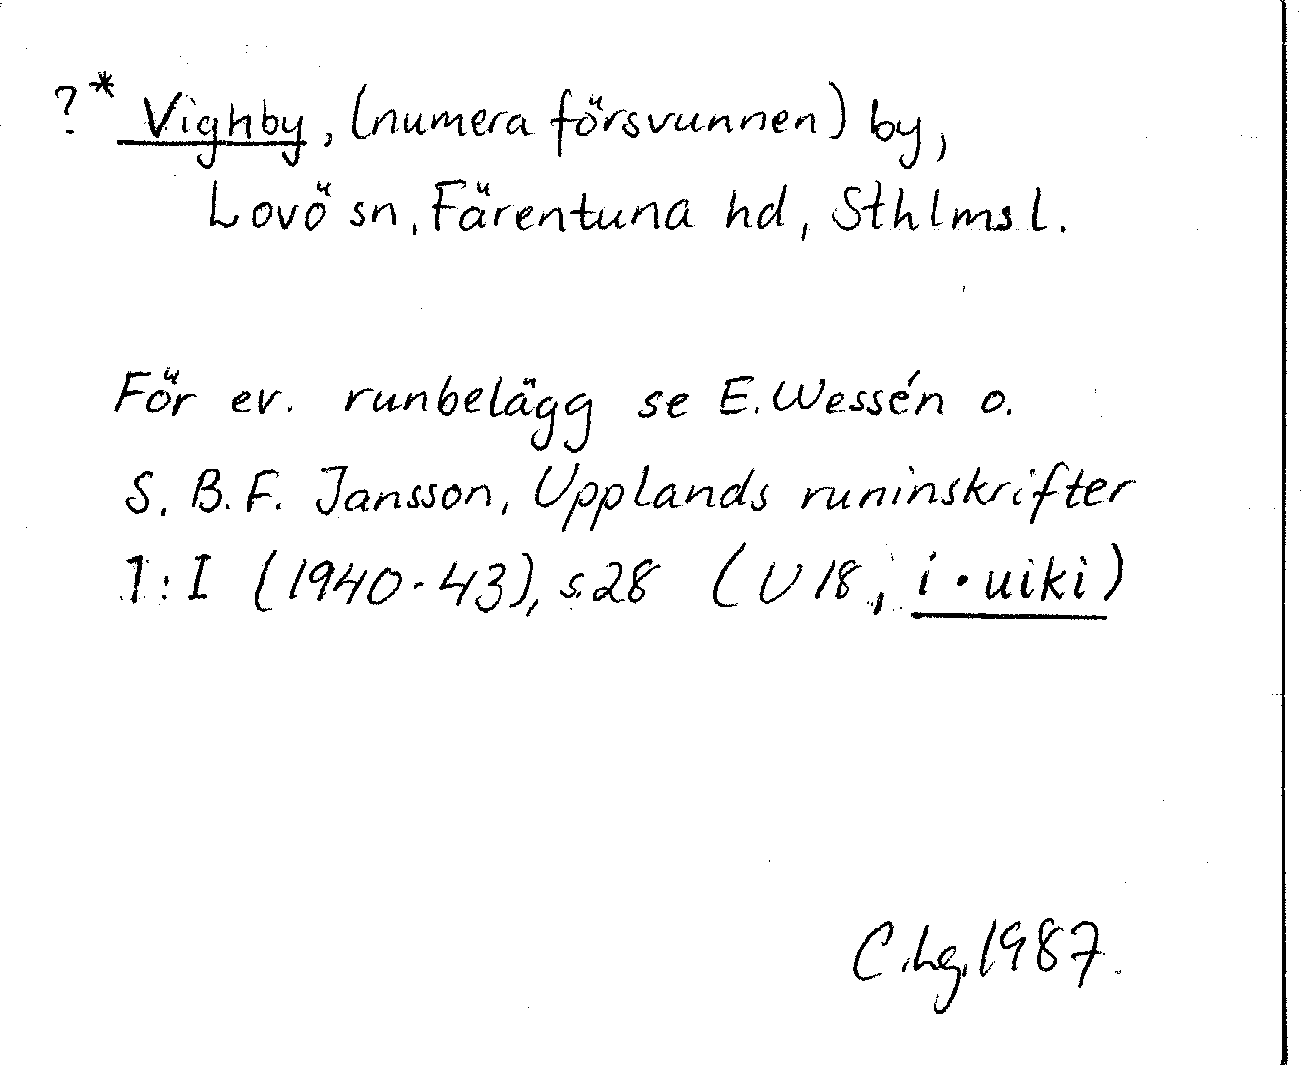 ?* Vighby, (numera försvunnen) by,
Lovö sn, Färentuna hd, Sthlms l.
För ev. runbelägg se E. Wessén o.
S. B. F. Jansson, Upplands runinskrifter
1:I (1940-43), s 28 (U 18, i · uiki)
C. Lg. 1987.